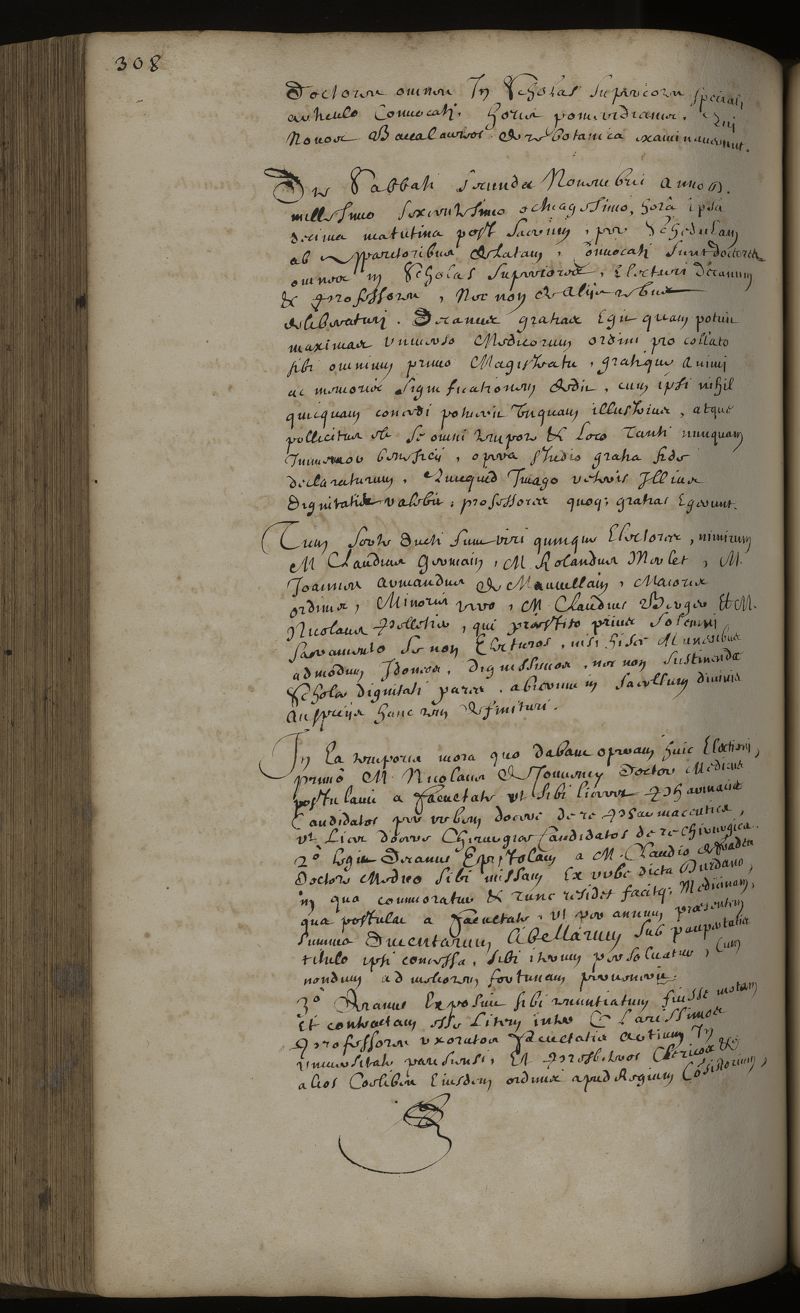 308
Doctores omnes In Scholas superiores speciali
articulo Convocati, horis pomeridianis, qui
Novos Baccalaureos de re botanica examinaverunt.
Die Sabbati secunda Novembris anno D.
millesimo sexcentesimo octuagesimo, hora ipsa
decima matutina post sacrum, per Schedulam
ab apparitoribus delatam, convocati sunt doctores
omnes in Scholas superiores, Electuri Decanum
& Professores, Nec non de alijs rebus
deliberaturi. Decanus gratias Egit quam potuit
maximas universo Medicorum ordini pro collato
sibi omnium primo Magistratu, gratique animi
ac memoris significationem dedit, cum ipsi nihil
quicquam concedi potuerit unquam illustrius, atque
pollicitus est se omni tempore & loco tanti nunquam
Immemor beneficij, opera studio gratia fide
declaraturum, quicquid Imago veteris Illius
Dignitatis valebit; professores quoq; gratias Egerunt.
Tum sorte ducti sunt viri quinque Electores, nimirum
M Claudius Germain, M Rolandus Merlet, M.
Joannes Armandus de Mauvillain, Maioris
ordinis, Minoris vero, M. Claudius Berger Et M.
Nicolaus Pelletier, qui praestito prius solemni
sacramento se non Electuros, nisi hisce Muneribus
admodum Idoneos, dignissimos, nec non sustinendae
Scholae dignitati pares, abierunt in sacellum divinis
auspicijs hanc rem definituri.
In Ea temporis mora quo dabant operam huic Electioni,
primo M. Nicolaus de Doctor Medicus
postulavit a Facultate ut sibi liceret Pharmaciae
Candidatos per urbem docere de re Pharmaceutica,
ut licet docere Chirurgiae Candidatos de re chirurgica.
2o legit Decanus Epistolam a M. Claudio
Doctore Medico sibi missam Ex urbe dicta
in qua commoratur & nunc residet facitq; Medicinam,
qua postulat a Facultate, ut per annum praesentem
summa Ducentarum libellarum sub paupertatis
titulo ipsi concessa, sibi iterum persolvatur, cum
nondum ad meliorem fortunam pervenerit.
3o Decanus Exposuit sibi renuntiatum fuisse motam
et contractam esse Litem inter Clarissimos
Professores uxoratos Facultatis artium In
universitate parisiensi, Et Presbiteros Clericos &
alios Coelibes Eiusdem ordinis apud Regium Consistorium,